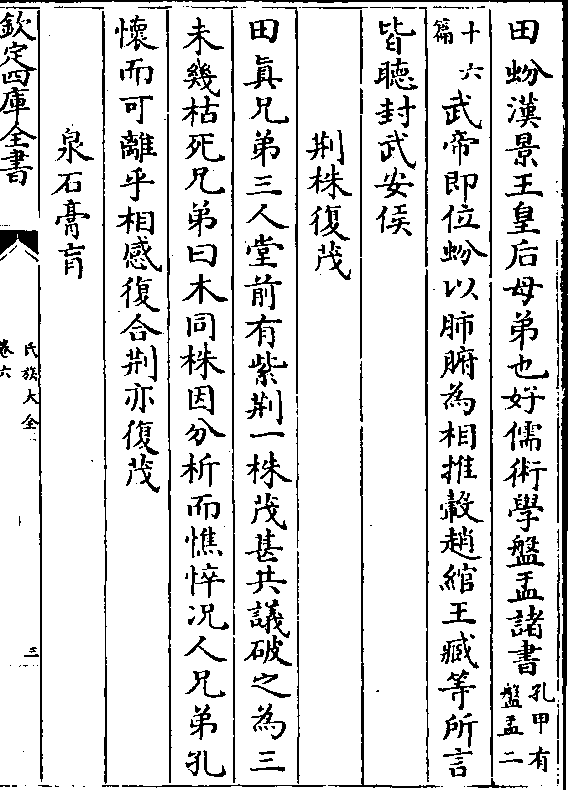 田蚡漢景王皇后母弟也好儒術學盤盂諸書孔甲有盤盂二
十六篇武帝即位蚡以肺腑為相推轂趙綰王臧等所言
皆聽封武安侯
荆株復茂
田眞兄弟三人堂前有紫荆一株茂甚共議破之為三
未幾枯死兄弟曰木同株因分析而憔悴况人兄弟孔
懷而可離乎相感復合荆亦復茂
泉石膏肓
欽定四庫全書
氏族大全
卷六
三